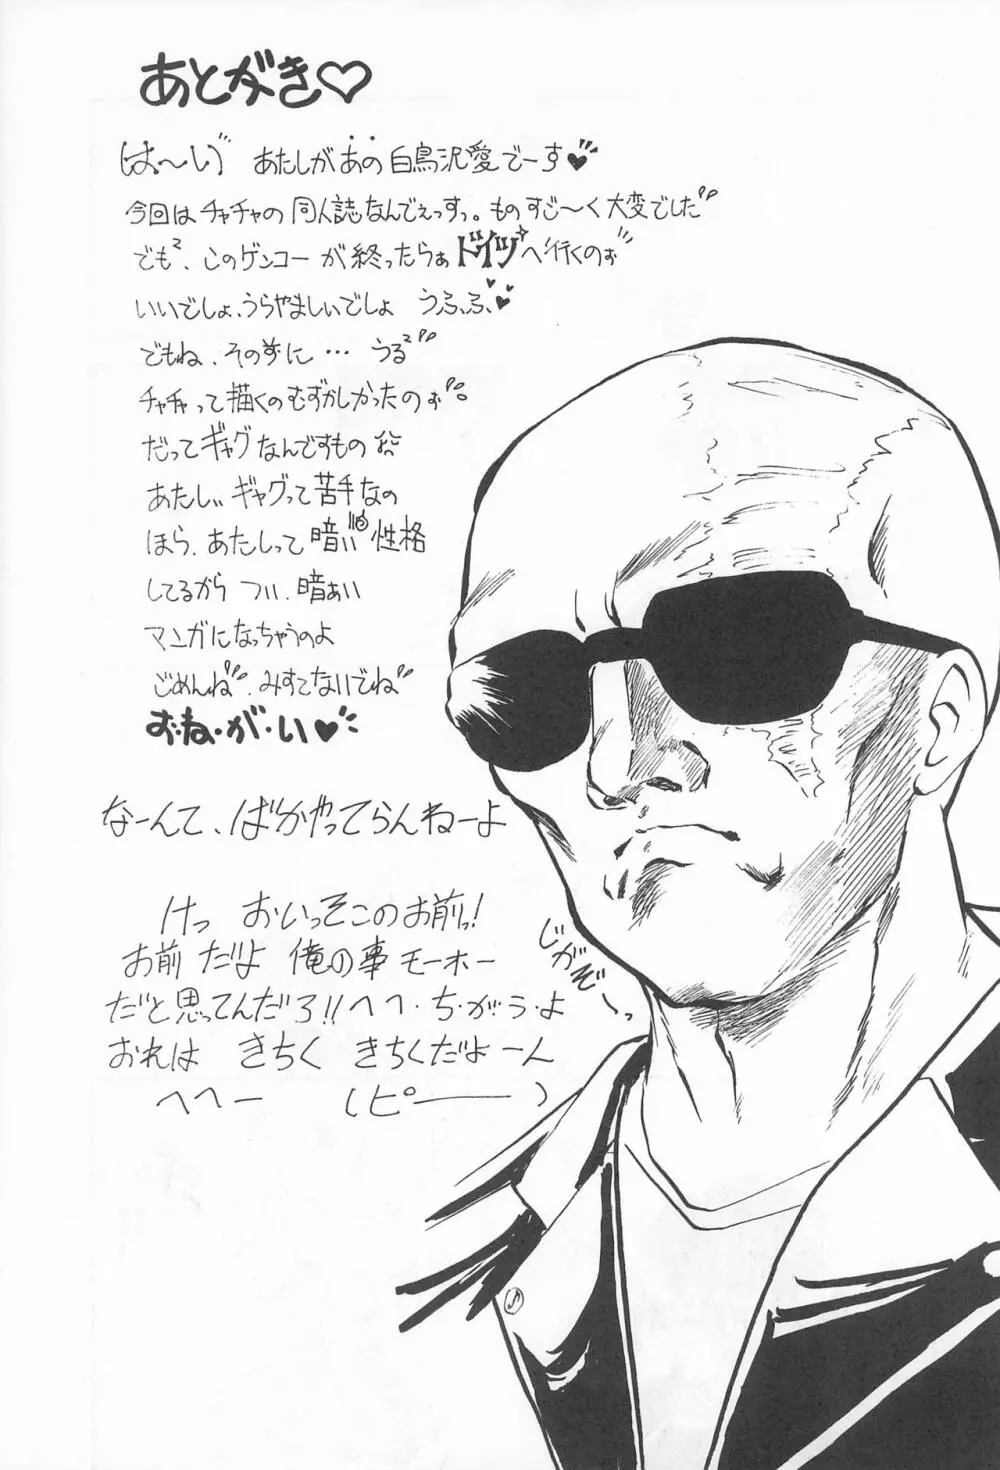 あとがき♡
は〜い゛ あたしがあの白鳥沢愛でーす♥
今回はチャチャの同人誌なんでぇっすっ。ものすご〜く大変でした
でも²、このゲンコーが終ったらぁドイツへ行くのぉ
いいでしょ、うらやましいでしょ うふふ♥
でもね、その前に… うる²
チャチャって描くのむずかしかったのぉ。
だってギャグなんですもの
あたし、ギャグって苦手なの
ほら、あたしって暗い性格
してるから つい、暗ぁい
マンガになっちゃうのよ
ごめんね、みすてないでね
お・ね・が・い♥
なーんて、ばかやってらんねーよ
けっ おいっそこのお前っ!
お前だよ 俺の事モーホー
だと思ってんだろ!!へへ・ち・が・う・よ
おれは きちく きちくだよーん
へへー (ピー――)
じがぞーっ